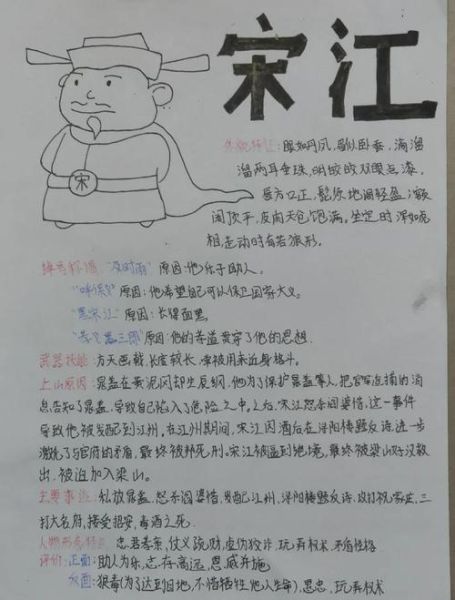 宋江
宋
外貌特征:眼如丹凤,眉似卧蚕,滴溜
溜两耳垂珠,明皎皎双眼点漆,
唇方口正,髭须地阁轻盈;额
阔顶平,皮肉天仓饱满。坐定时浑如虎
相,走动时有若狼形。
绰号称谓:"及时雨"原因:他乐于助人。
"呼保义"原因:他希望自己可以保卫国家大义。
"黑宋江"原因:长得面黑。
"孝义黑三郎"原因:他的孝道贯穿了他的思想。
武器技能:方天画戟,长度较长,常被用来近身格斗。
上山原因:晁盖在黄泥冈劫生辰纲,他为了保护晁盖等人,把官府追捕的消
息告知了晁盖,导致自己陷入了危险之中。之后,宋江怒杀阎婆惜,这一事件
导致他被发配到江州。在江州期间,宋江因酒后在浔阳楼题反诗,进一步
激化了与官府的矛盾,最终被判死刑。宋江被逼到绝境,最终被梁山好汉救
出,被迫加入梁山。
主要事迹:私放晁盖,怒杀阎婆惜,发配江州,浔阳楼题反诗,攻打祝家庄,三
打大名府,接受招安,毒酒之死。
人物形象特点:忠君孝亲,仗义疏财,虚伪狡诈,玩弄权术,
评价:正面:助人为乐,志存高远,恩威并施
反面:狠毒(为了达到目地,不惜牺牲他人生命),愚忠,玩弄权术